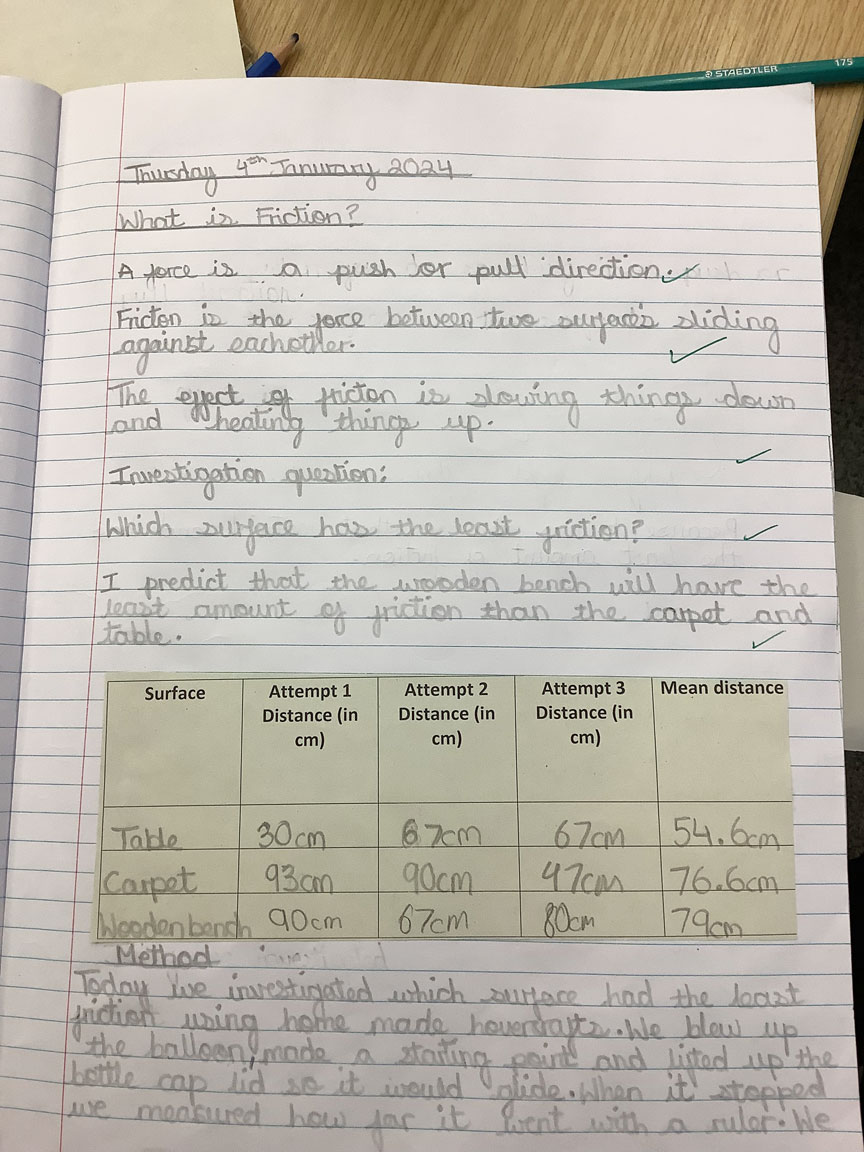 STAEDTLER 175
Thursday 4th Janurary 2024
What is Friction?
A force is a push or pull direction.
Fricton is the force between two surfaces sliding
against eachother.
The effect of fricton is slowing things down
and heating things up.
Investigation question:
Which surface has the least friction?
I predict that the wooden bench will have the
least amount of friction than the carpet and
table.
Surface Attempt 1 Distance (in cm) Attempt 2 Distance (in cm) Attempt 3 Distance (in cm) Mean distance
Table 30cm 67cm 67cm 54.6cm
Carpet 93cm 90cm 47cm 76.6cm
Wooden bench 90cm 67cm 80cm 79cm
Method
Today we investigated which surface had the least
friction using home made hovercrafts. We blew up
the balloon, made a starting point and lifted up the
bottle cap lid so it would glide. When it stopped
we measured how far it went with a ruler. We